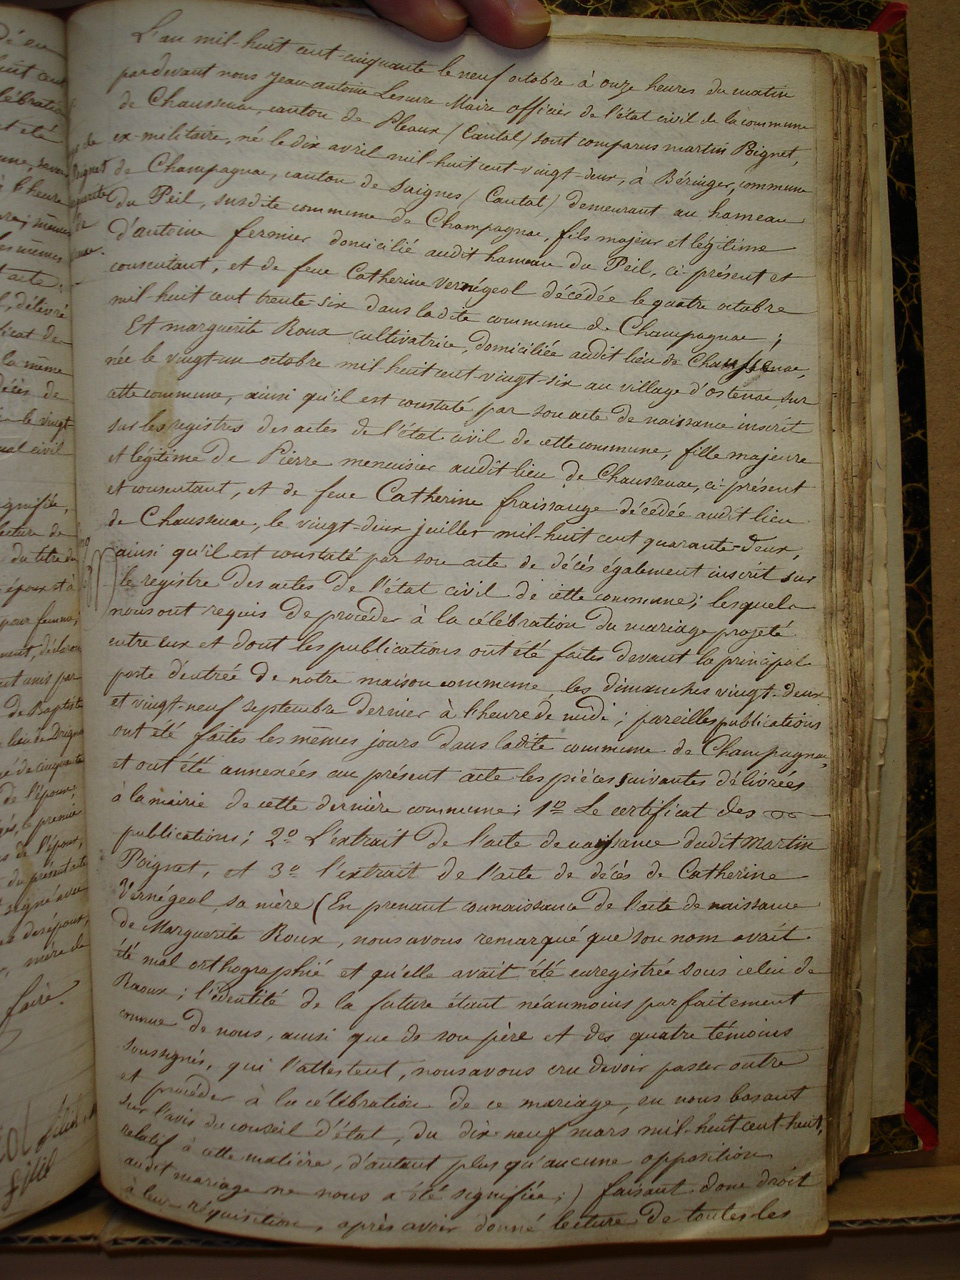 L'an mil-huit cent cinquante le neuf octobre à onze heures du matin
pardevant nous Jean antoine Lescure Maire officier de l'état civil de la commune
de Chaussenac, canton de Pleaux (Cantal) sont comparus martin Poignet,
ex-militaire, né le dix avril mil-huit cent vingt-deux, à Béringer, commune
de Champagnac, canton de Saignes (Cantal) demeurant au hameau
du Peil, susdite commune de Champagnac, fils majeur et légitime
d'antoine fermier domicilié audit hameau du Peil, ci-présent et
consentant, et de feue Catherine Vernégeol décédée le quatre octobre
mil-huit cent trente-six dans ladite commune de Champagnac;
Et marguerite Roux cultivatrice, domiciliée audit lieu de Chaussenac,
née le vingt-un octobre mil huit cent-vingt-six au village d'ostenac, sur
cette commune, ainsi qu'il est constaté par son acte de naissance inscrit
sur les registres des actes de l'état civil de cette commune, fille majeure
et légitime de Pierre menuisier audit lieu de Chaussenac, ci-présent
et consentant, et de feue Catherine fraissange décédée audit lieu
de Chaussenac, le vingt-deux juillet mil-huit cent quarante-deux,
ainsi qu'il est constaté par son acte de décès également inscrit sur
le registre des actes de l'état civil de cette commune; lesquels
nous ont requis de procéder à la célébration du mariage projeté
entre eux et dont les publications ont été faites devant la principale
porte d'entrée de notre maison commune, les dimanches vingt-deux
et vingt-neuf septembre dernier à l'heure de midi; pareilles publications
ont été faites les mêmes jours dans ladite commune de Champagnac,
et ont été annexées au présent acte les pièces suivantes délivrées
à la mairie de cette dernière commune: 1º Le certificat des
publications; 2º L'extrait de l'acte de naissance dudit Martin
Poignet, et 3º l'extrait de l'acte de décès de Catherine
Vernégeol, sa mère (En prenant connaissance de l'acte de naissance
de Marguerite Roux, nous avons remarqué que son nom avait
été mal orthographié et qu'elle avait été enregistrée sous celui de
Raoux; l'identité de la future étant néanmoins parfaitement
connue de nous, ainsi que de son père et des quatre témoins
soussignés, qui l'attestent, nous avons cru devoir passer outre
et procéder à la célébration de ce mariage, en nous basant
sur l'avis du conseil d'état, du dix-neuf mars mil-huit cent-huit,
relatif à cette matière, d'autant plus qu'aucune opposition
audit mariage ne nous a été signifiée;) faisant donc droit
à leur réquisition, après avoir donné lecture de toutes les